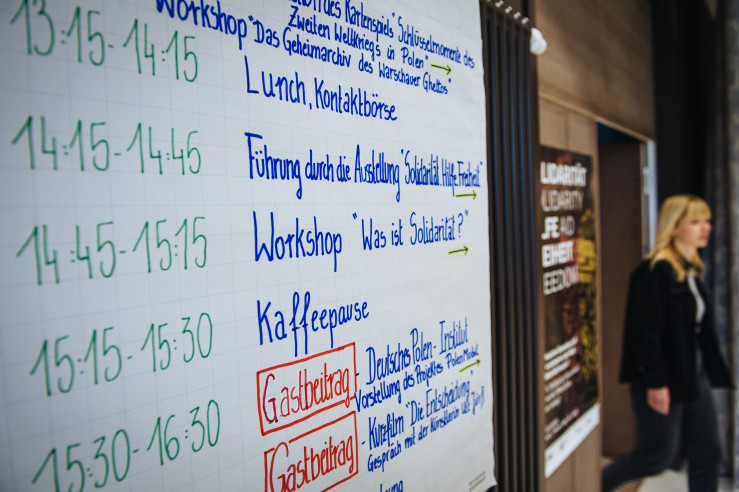 des Kartenspiels" Schlüsselmomente des
Zweiten Weltkriegs in Polen"
Workshop "Das Geheimarchiv des Warschauer
Ghettos"
13:15-14:15 Lunch, Kontaktbörse
14:15-14:45 Führung durch die Ausstellung "Solidarität. Hilfe. Freiheit"
14:45-15:15 Workshop "Was ist Solidarität?"
15:15-15:30 Kaffeepause
15:30-16:30 Gastbeitrag - Deutsches Polen-Institut
Vorstellung des Projektes Polen Mobil
Gastbeitrag - Kurzfilm "Die Entscheidung"
Gespräch mit der Künstlerin
LIDARITÄT
LIDARITY
LFE AID
EIHEIT
EEDOM